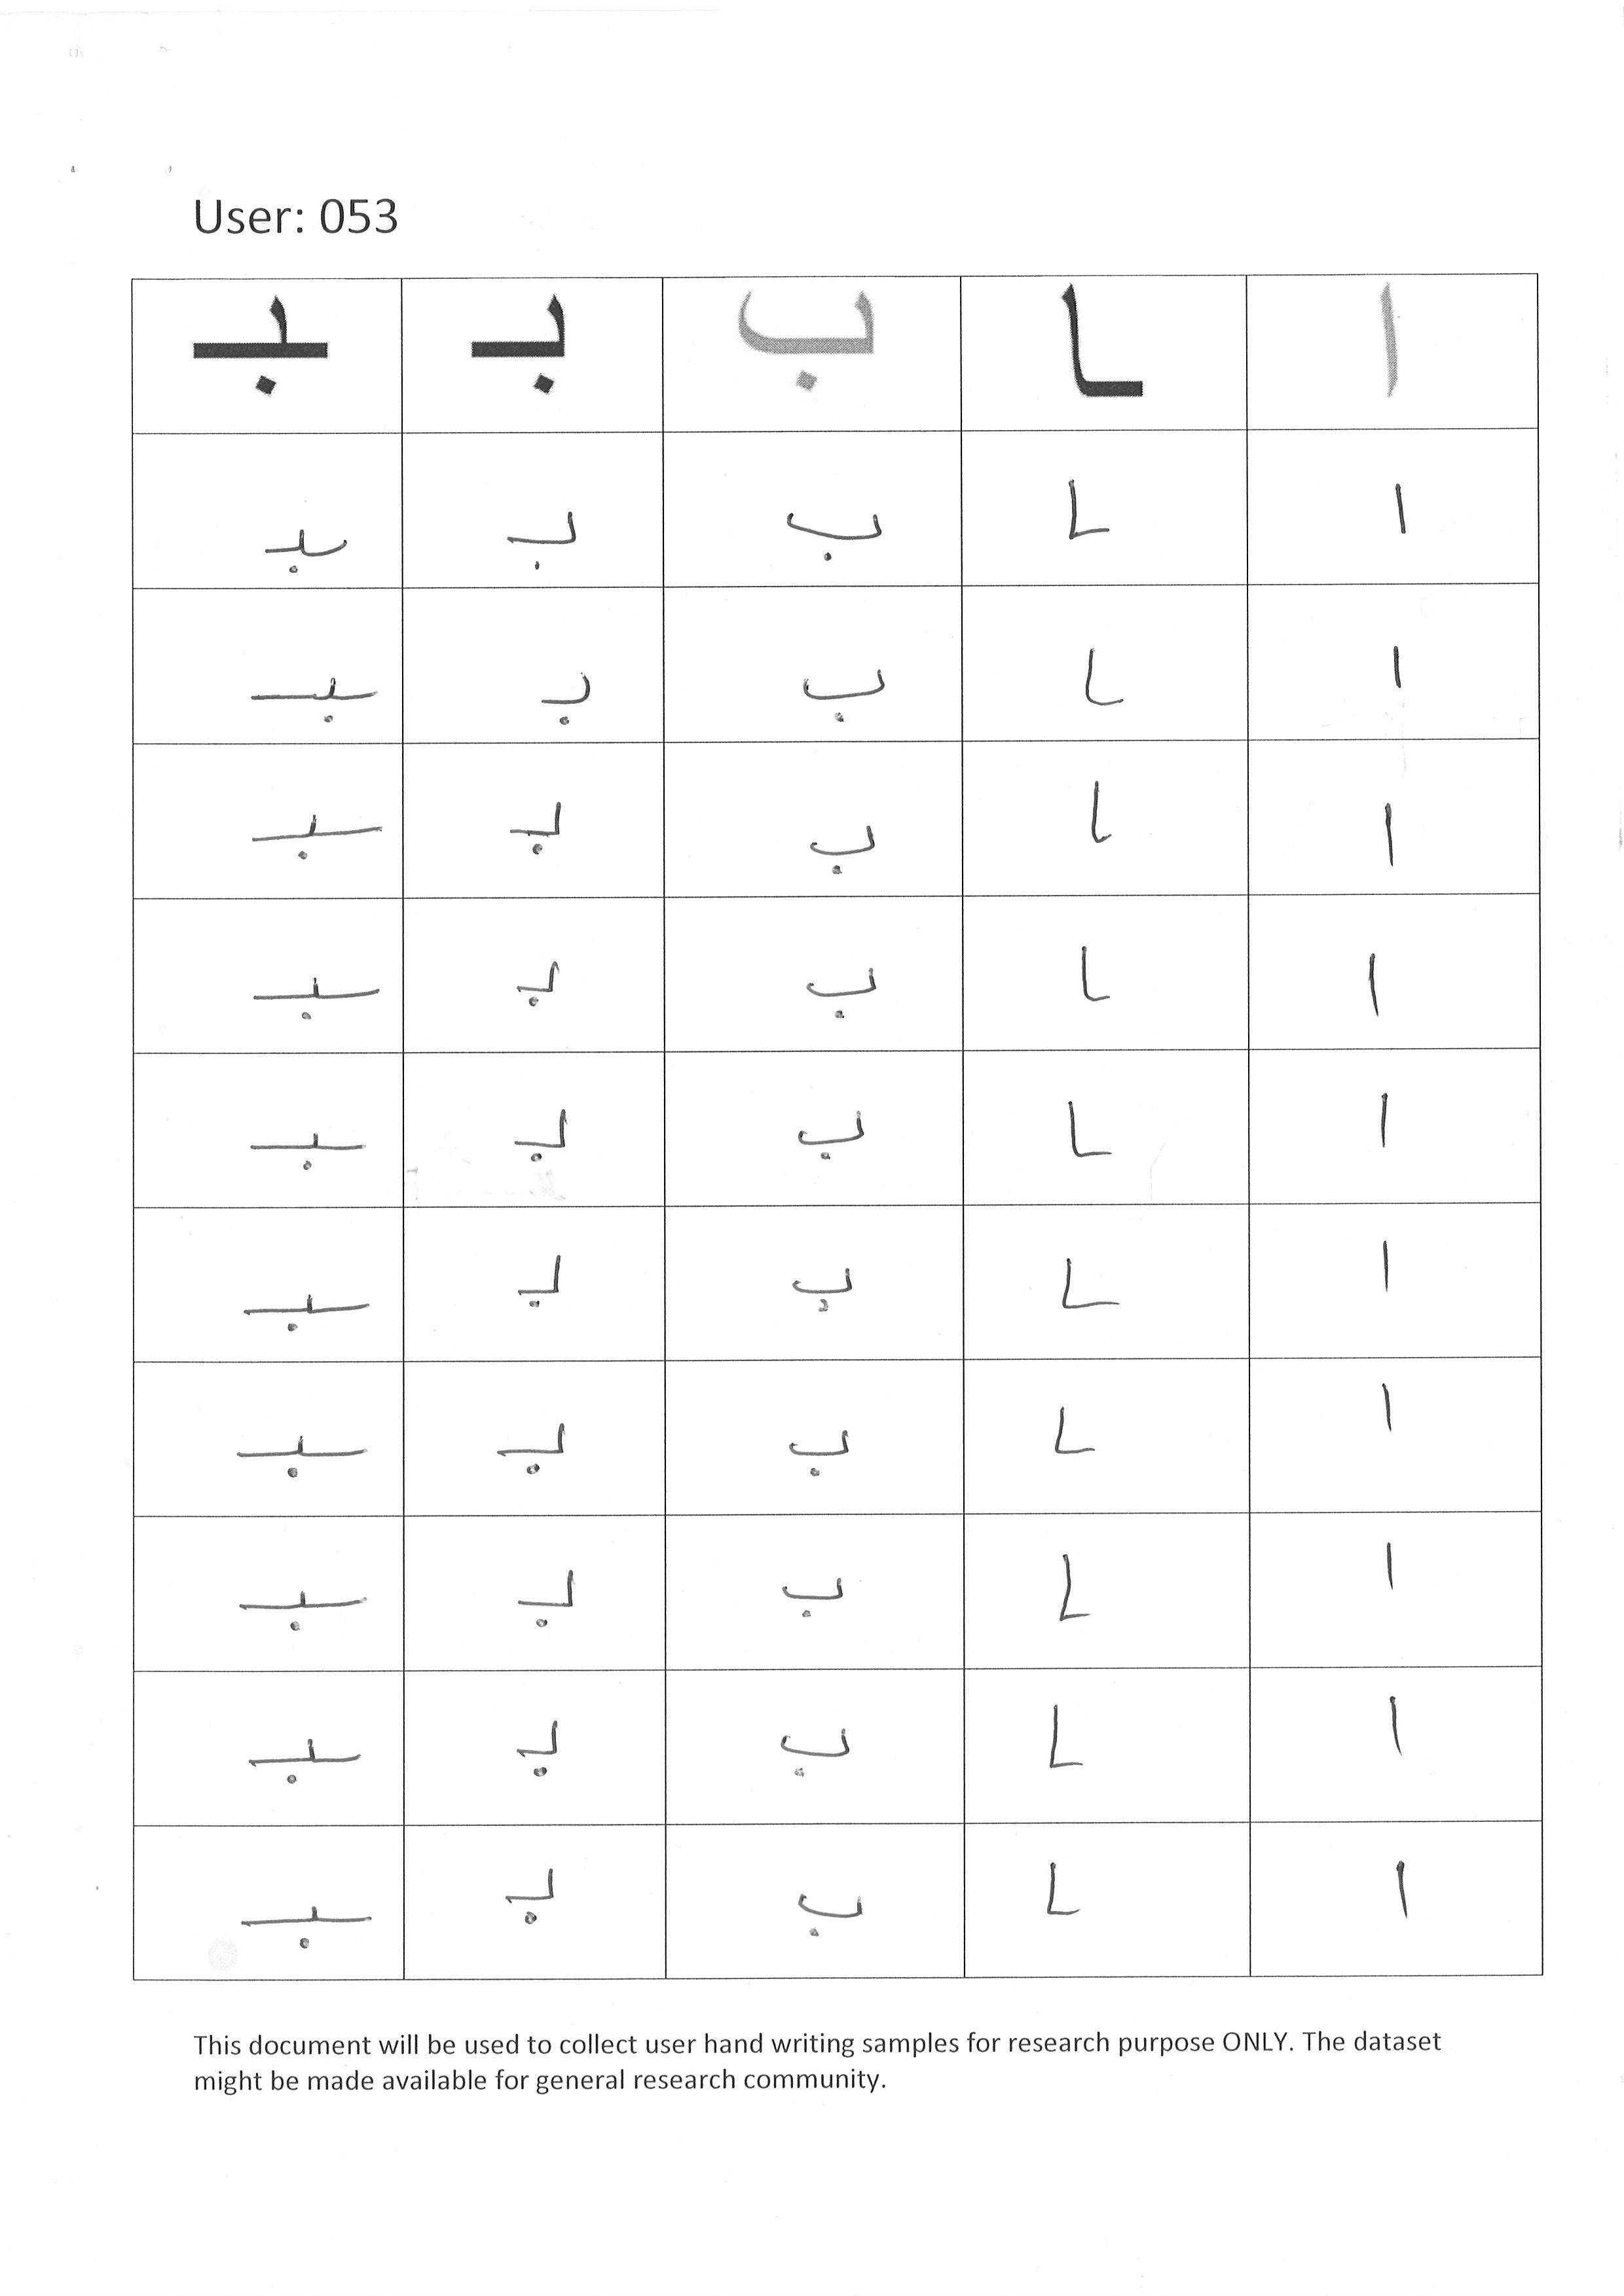 User: 053
ا ـا ب بـ ـبـ
ا ـا ب بـ ـبـ
ا ـا ب بـ ـبـ
ا ـا ب بـ ـبـ
ا ـا ب بـ ـبـ
ا ـا ب بـ ـبـ
ا ـا ب بـ ـبـ
ا ـا ب بـ ـبـ
ا ـا ب بـ ـبـ
ا ـا ب بـ ـبـ
ا ـا ب بـ ـبـ
This document will be used to collect user hand writing samples for research purpose ONLY. The dataset
might be made available for general research community.